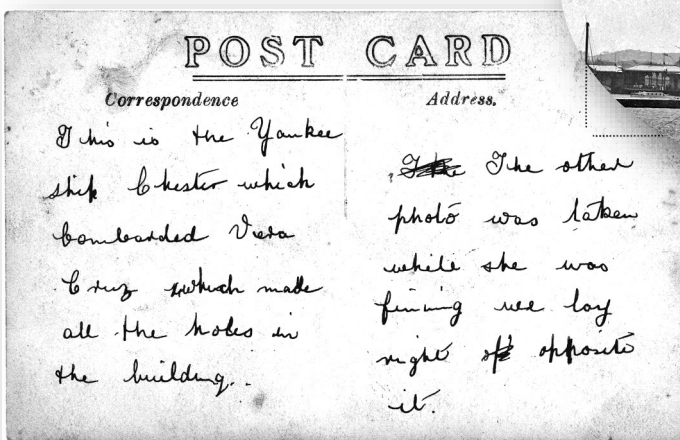 POST CARD
Correspondence
Address.
This is the Yankee
ship Chester which
bombarded Vera
Cruz which made
all the holes in
the building.
The other
photo was taken
while she was
firing we lay
right opposite
it.